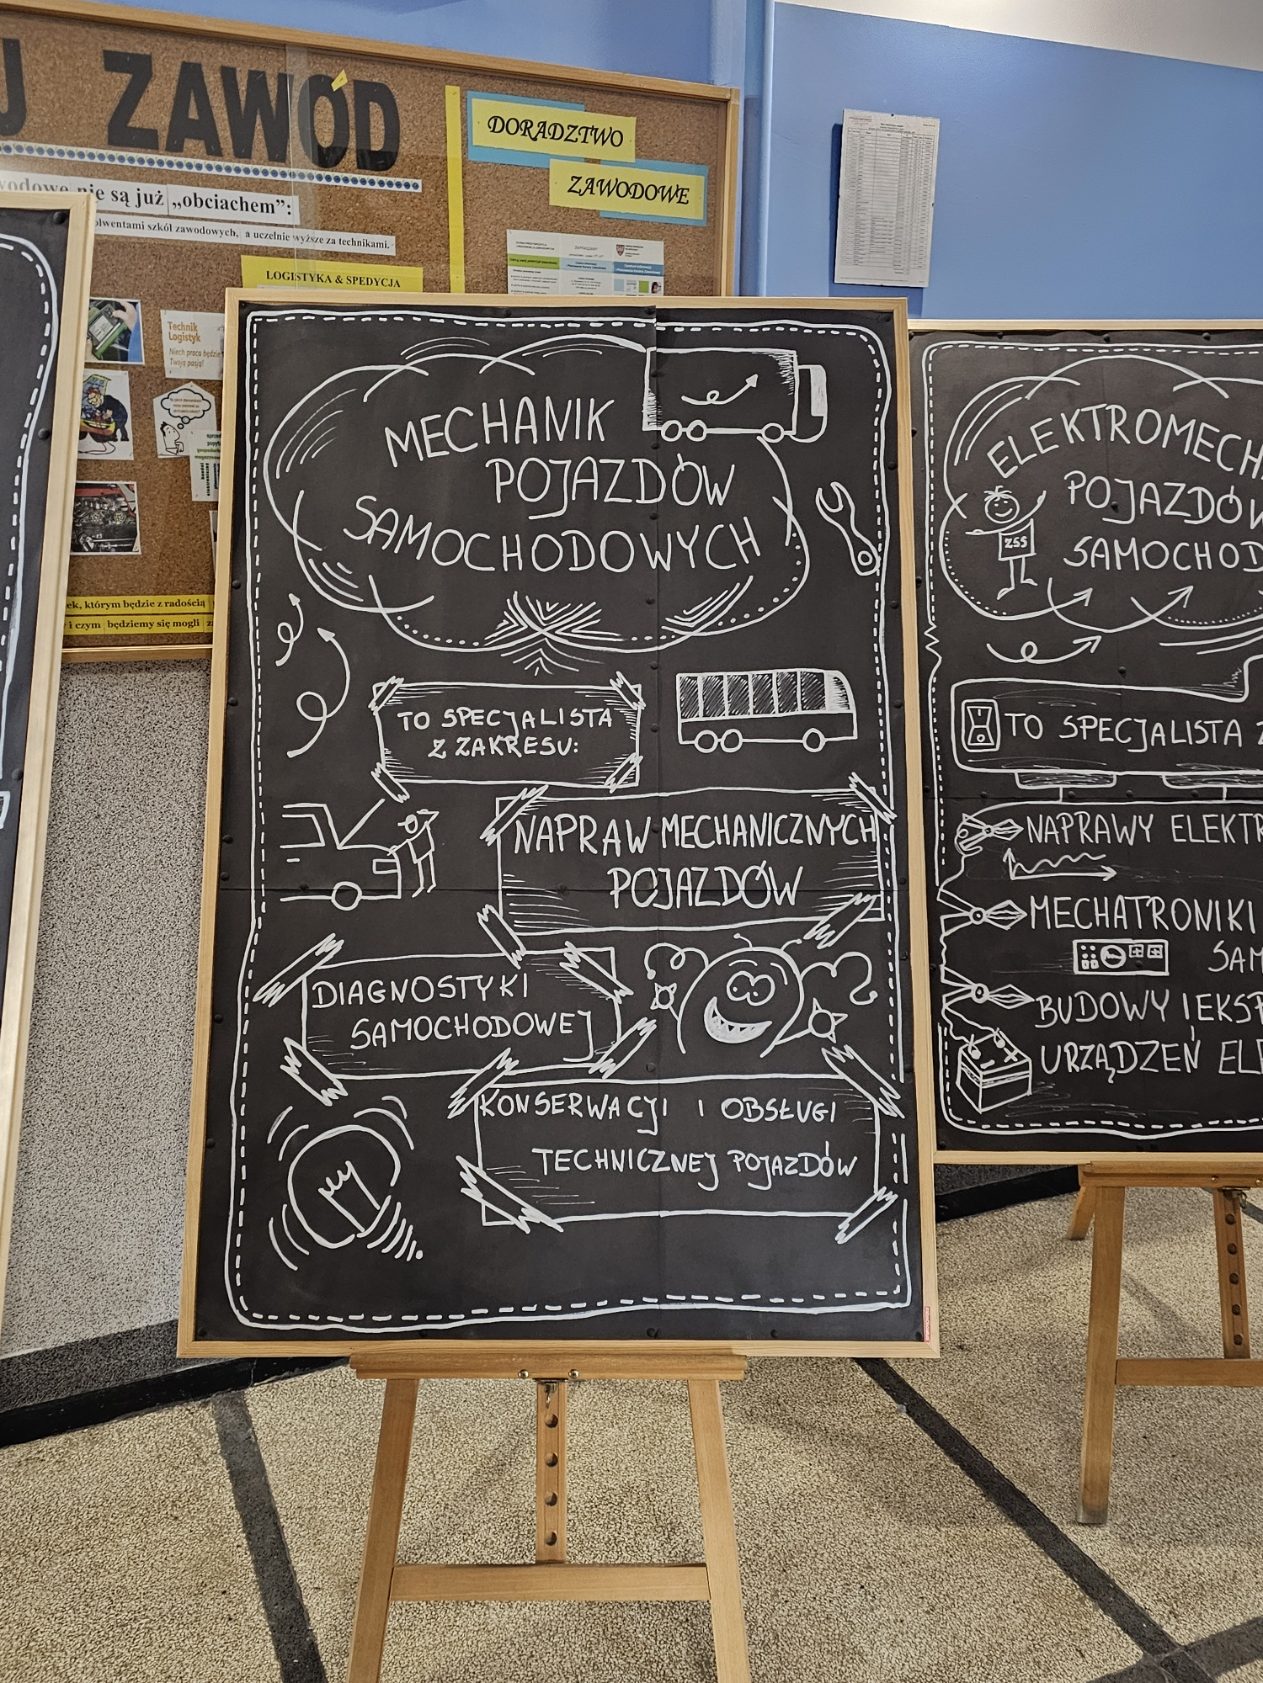 ZAWÓD
nie są już „obciachem”:
szkół zawodowych, a uczelnie wyższe za technikami.
LOGISTYKA & SPEDYCJA
DORADZTWO
ZAWODOWE
Technik
Logistyk
Niech praca będzie
Twoją pasją!
którym będzie z radością
i czym będziemy się mogli
MECHANIK
POJAZDÓW
SAMOCHODOWYCH
TO SPECJALISTA
Z ZAKRESU:
NAPRAW MECHANICZNYCH
POJAZDÓW
DIAGNOSTYKI
SAMOCHODOWEJ
KONSERWACJI I OBSŁUGI
TECHNICZNEJ POJAZDÓW
ELEKTROMECH
POJAZDÓW
SAMOCHOD
ZSS
TO SPECJALISTA Z
NAPRAWY ELEKTR
MECHATRONIKI
SAM
BUDOWY I EKSP
URZĄDZEŃ ELE